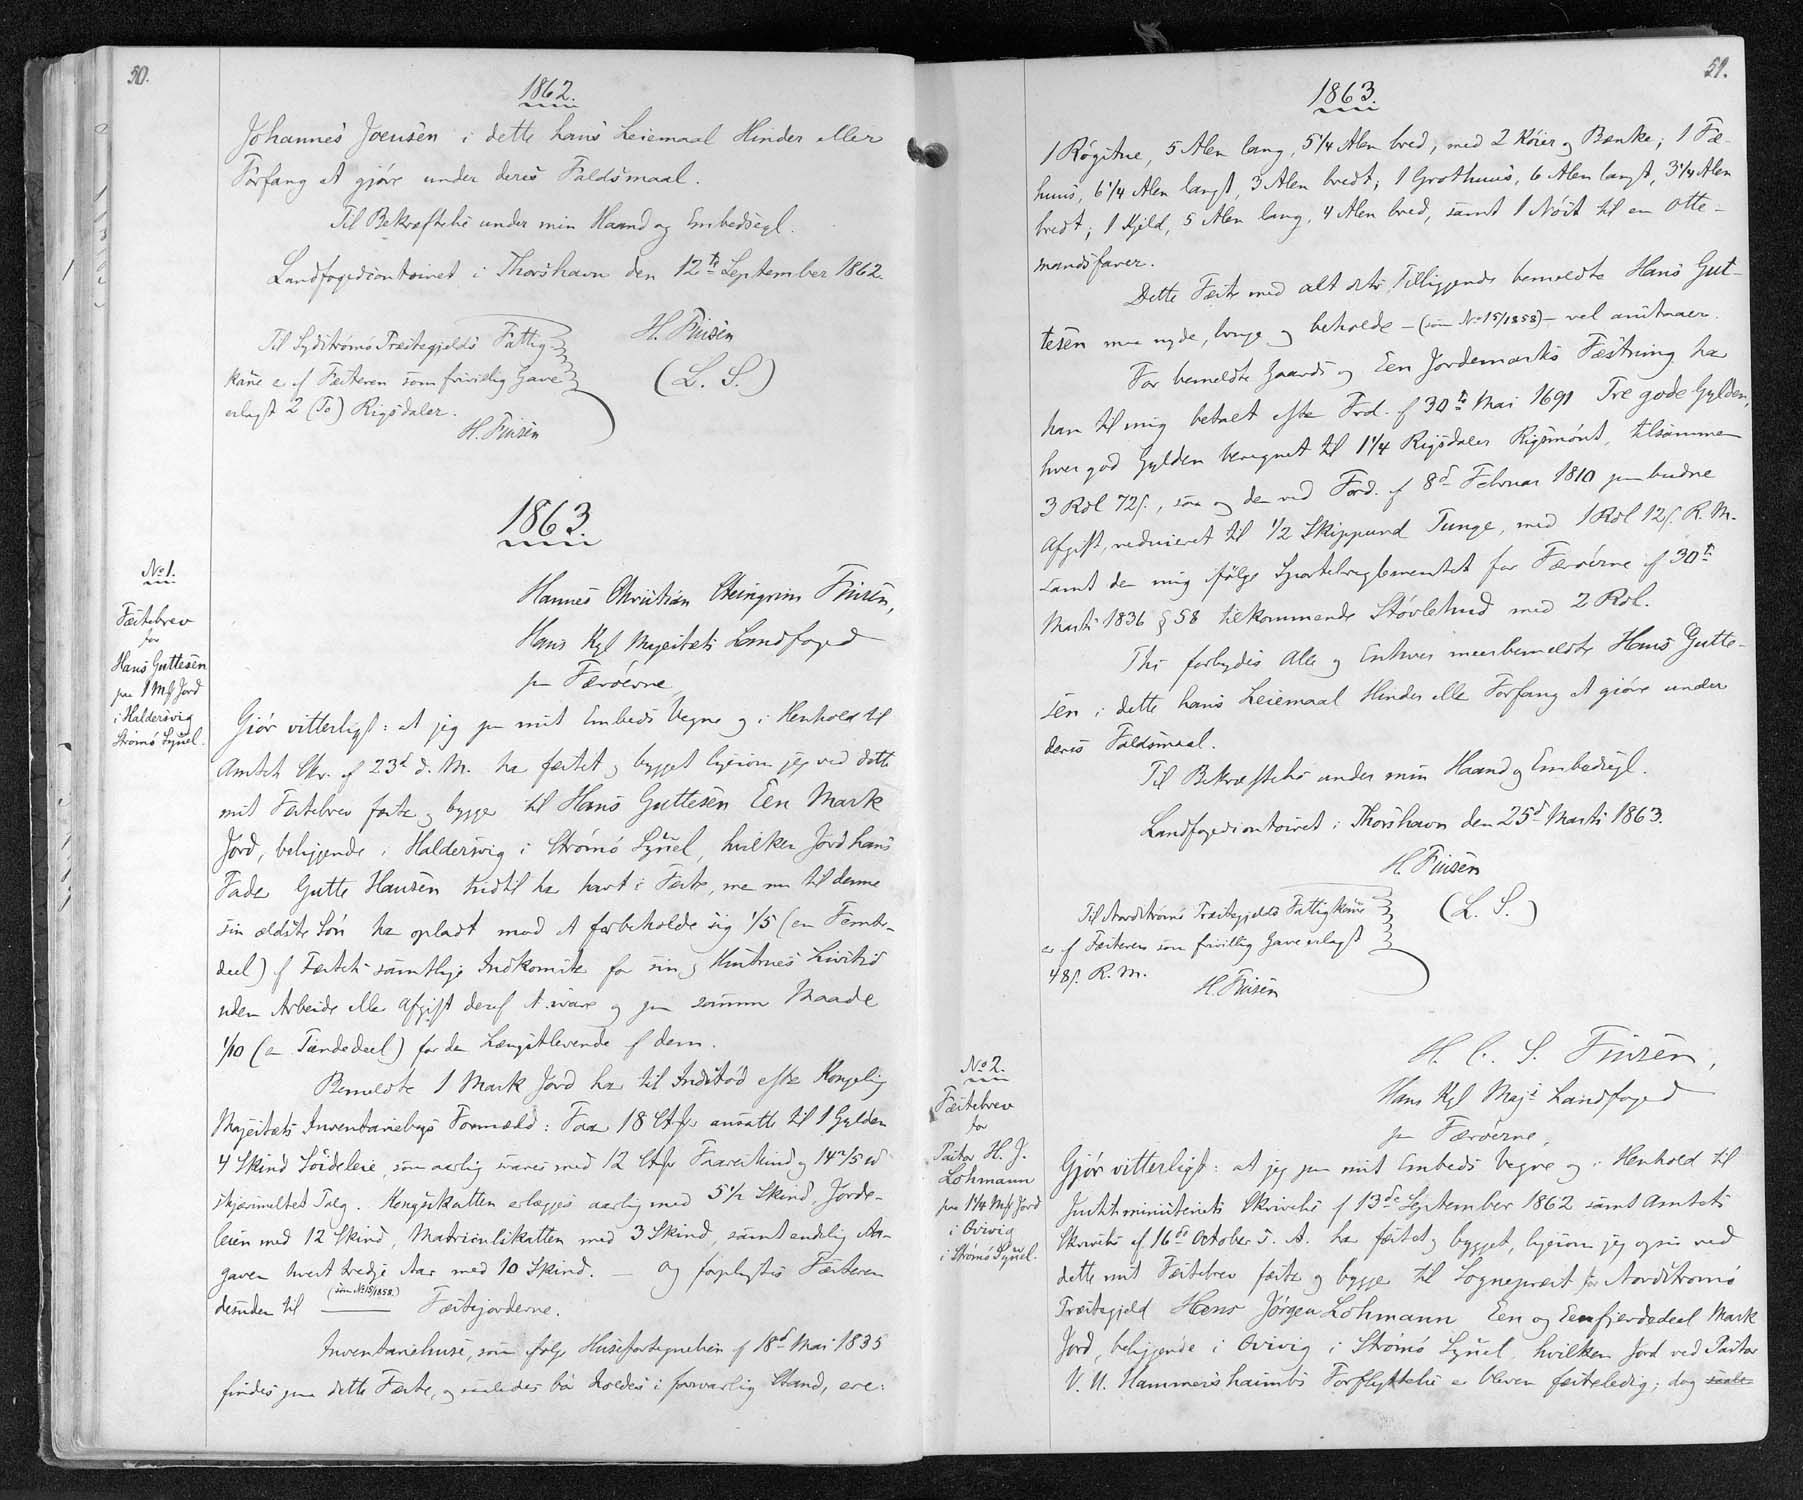 50.
1862.
Johannes Joensen i dette hans Leiemaal Hinder eller
Forfang at gjøre under deres Faldsmaal.
Til Bekræftelse under min Haand og Embedssegl.
Landfogedcontoiret i Thorshavn den 12te September 1862.
H. Finsen
(L. S.)
Til Sydstrømø Præstegjelds Fattig-
kasse er af Fæsteren som frivillig Gave
erlagt 2 (To) Rigsdaler.
H. Finsen
1863.
No 1.
Fæstebrev
for
Hans Guttesen
paa 1 Mk Jord
i Haldersvig
Strømø Syssel.
Hannes Christian Steingrim Finsen,
Hans Kgl Majestæts Landfoged
paa Færøerne,
Gjør vitterligt: at jeg paa mit Embeds Vegne og i Henhold til
Amtets Skr. af 23d d. M. har fæstet og bygget ligesom jeg ved dette
mit Fæstebrev fæster og bygger til Hans Guttesen Een Mark
Jord, beliggende i Haldersvig i Strømø Syssel, hvilken Jord hans
Fader Gutte Hansen hidtil har havt i Fæste, men nu til denne
sin ældste Søn har opladt mod at forbeholde sig 1/5 (en Femte-
deel) af Fæstets samtlige Indkomster for sin og Hustrues Livstid
uden Arbeide eller Afgift deraf at svare og paa samme Maade
1/10 (en Tiendedeel) for den Længstlevende af dem.
Bemeldte 1 Mark Jord har til Indstød efter Kongelig
Majestæts Inventariebogs Formeld: Faar 18 Stkr ansatte til 1 Gylden
4 Skind Søideleie, som aarlig svares med 12 Stkr Faareskind og 14 2/5 lb
skjærsmeltet Talg. Kongsskatten erlægges aarlig med 5 1/2 Skind, Jorde-
leien med 12 Skind, Matriculskatten med 3 Skind, samt endelig Aa-
gaven hvert tredje Aar med 10 Skind. — Og forpligtes Fæsteren
desuden til (som No 15/1858.) Fæstejorderne.
Inventariehuse, som ifølge Husefortegnelsen af 18d Mai 1835
findes paa dette Fæste, og saaledes bør holdes i forsvarlig Stand, ere:
51.
1863.
1 Røgstue, 5 Alen lang, 5 1/4 Alen bred, med 2 Köier og Bænke; 1 Fæ-
huus, 6 1/4 Alen langt, 3 Alen bredt; 1 Grothuus, 6 Alen langt, 3 1/4 Alen
bredt; 1 Hjeld, 5 Alen lang, 4 Alen bred, samt 1 Nøst til en Otte-
mandsfarer.
Dette Fæste med alt dets Tilliggende bemeldte Hans Gut-
tesen maa nyde, bruge og beholde — (som No 15/1858) — vel anstaaer.
For bemeldte Gaards og Een Jordemarks Fæstning har
han til mig betalt efter Frd. af 30te Mai 1691 Tre gode Gylden,
hver god Gylden beregnet til 1 1/4 Rigsdaler Rigsmønt, tilsammen
3 Rdl 72 ß., saa og den ved Ford. af 8d Februar 1810 paabudne
Afgift, reduceret til 1/2 Skippund Tunge, med 1 Rdl 12 ß. R. M.
samt den mig ifølge Sportelreglementet for Færøerne af 30te
Marts 1836 § 58 tilkommende Støvlehud med 2 Rdl.
Thi forbydes Alle og Enhver meerbemeldte Hans Gutte-
sen i dette hans Leiemaal Hinder eller Forfang at gjøre under
deres Faldsmaal.
Til Bekræftelse under min Haand og Embedssegl.
Landfogedcontoiret i Thorshavn den 25d Marts 1863.
H. Finsen
(L. S.)
Til Nordstrømø Præstegjelds Fattigkasse
er af Fæsteren som frivillig Gave erlagt
48 ß. R. M.
H. Finsen
No 2.
Fæstebrev
for
Pastor H. J.
Lohmann
paa 1 1/4 Mk Jord
i Qvivig
i Strømø Syssel.
H. C. S. Finsen,
Hans Kgl Majs Landfoged
paa Færøerne,
Gjør vitterligt: at jeg paa mit Embeds Vegne og i Henhold til
Justitsministeriets Skrivelse af 13de September 1862 samt Amtets
Skrivelse af 16de October s. A. har fæstet og bygget, ligesom jeg ogsaa ved
dette mit Fæstebrev fæster og bygger til Sognepræst for Nordstrømø
Præstegjeld Hans Jørgen Lohmann Een og Eenfjerdedeel Mark
Jord, beliggende i Qvivig i Strømø Syssel, hvilken Jord ved Pastor
V. U. Hammershaimbs Forflyttelse er bleven fæsteledig; dog saale